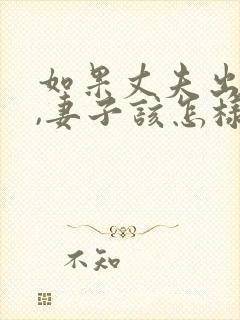 如果丈夫出
,妻子该怎样
不知